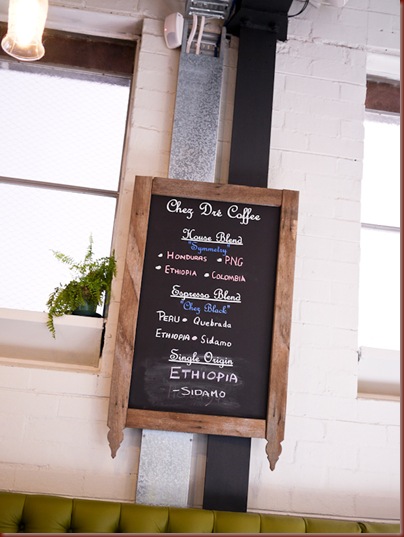 Chez Dré Coffee
House Blend
"Symmetry"
• HONDURAS • PNG
• ETHIOPIA • COLOMBIA
Espresso Blend
"Chez Black"
PERU • Quebrada
ETHIOPIA • Sidamo
Single Origin
ETHIOPIA
- SIDAMO